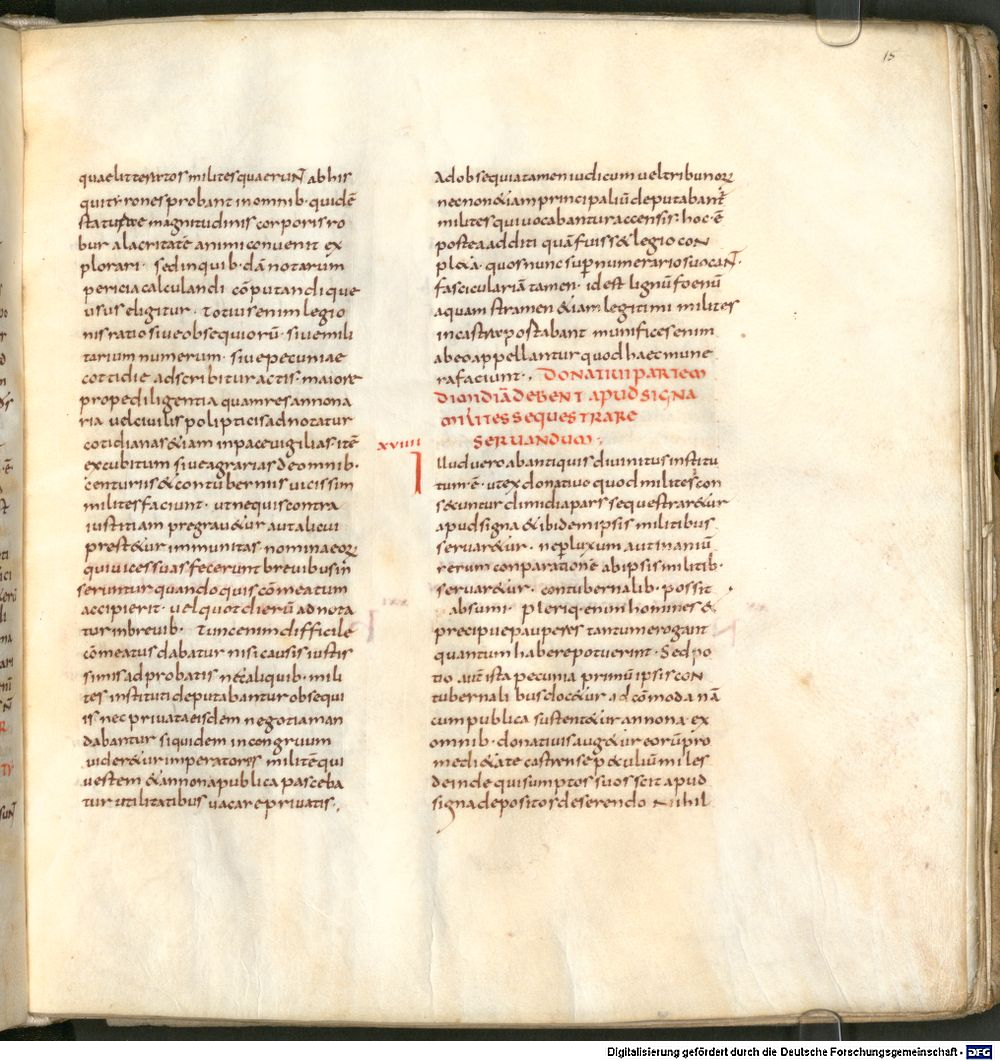 15
quae litteratos milites quaerunt ab his
qui tyrones probant in omnib· quidē
staturae magnitudinis corporis ro
bur alacritatē animi convenit ex
plorari· sed in quib·dā notarum
pericia calculandi cōputandique
usus eligitur· Totius enim legio
nis ratio sive obsequiorū· sive mili
tarium numerum· sive pecuniae
cottidie adscribitur actis· maiore
prope diligentia quam res annona
ria vel civilis polipticis adnotatur
cotidianas &iam in pace vigilias· itē
excubitum sive agrarias de omnib·
centuriis & contuberniis vicissim
milites faciunt· ut ne quis contra
iustitiam pregrav&ur aut alicui
prest&ur immunitas· nomina eoꝝ
qui vices suas fecerunt brevibus in
seruntur quando quis cōmeatum
accipierit· vel quot dierū adnota
tur in brevib· Tunc enim difficile
cōmeatus dabatur nisi causis iustis
simis adprobatis nec aliquib· mili
tes instituti deputabantur obsequi
is nec privata eisdem negotia man
dabantur siquidem incongruum
vider&ur imperatores militē qui
vestem & annona publica pasceba
tur utilitatibus vacare privatis·,
Ad obsequia tamen iudicum vel tribunoꝝ
nec non &iam principaliū deputabant̄
milites qui vocabantur accensis· hoc·ē
postea additi quā fuiss& legio con
plexa· quos nunc sup̱numerarios vocant·
fascicularia tamen· id est lignū foenū
aquam stramen &iam legitimi milites
in castra postabant munifices enim
ab eo appellantur quod haec mune
ra faciunt·, DONATIVI PARTEM
DIMIDIĀ DEBENT APUD SIGNA
MILITES SEQUESTRARE
SERVANDUM·,
XVIIII
Illud vero ab antiquis divinitus institu
tum·ē· ut ex donativo quod milites con
s&untur dimidia pars sequestrar&ur
apud signa & ibidem ipsis militibus
servar&ur· ne p̱ luxum aut inaniū
rerum conparationē ab ipsis militib·
servar&ur· contubernalib· possit
absumi· pleriq· enim homines &
precipue pauperes tantum erogant
quantum habere potuerint· Sedpo
tio autē ista pecunia primū ipsis con
tubernalibus doc&ur ad cōmoda nā
cum publica sustent&ur annona ex
omnib· donativis aug&ur eorū pro
medi&ate castrense p̱&uliū miles
deinde qui sumptos suos scit apud
signa depositos deserendo nihil
Digitalisierung gefördert durch die Deutsche Forschungsgemeinschaft - DFG